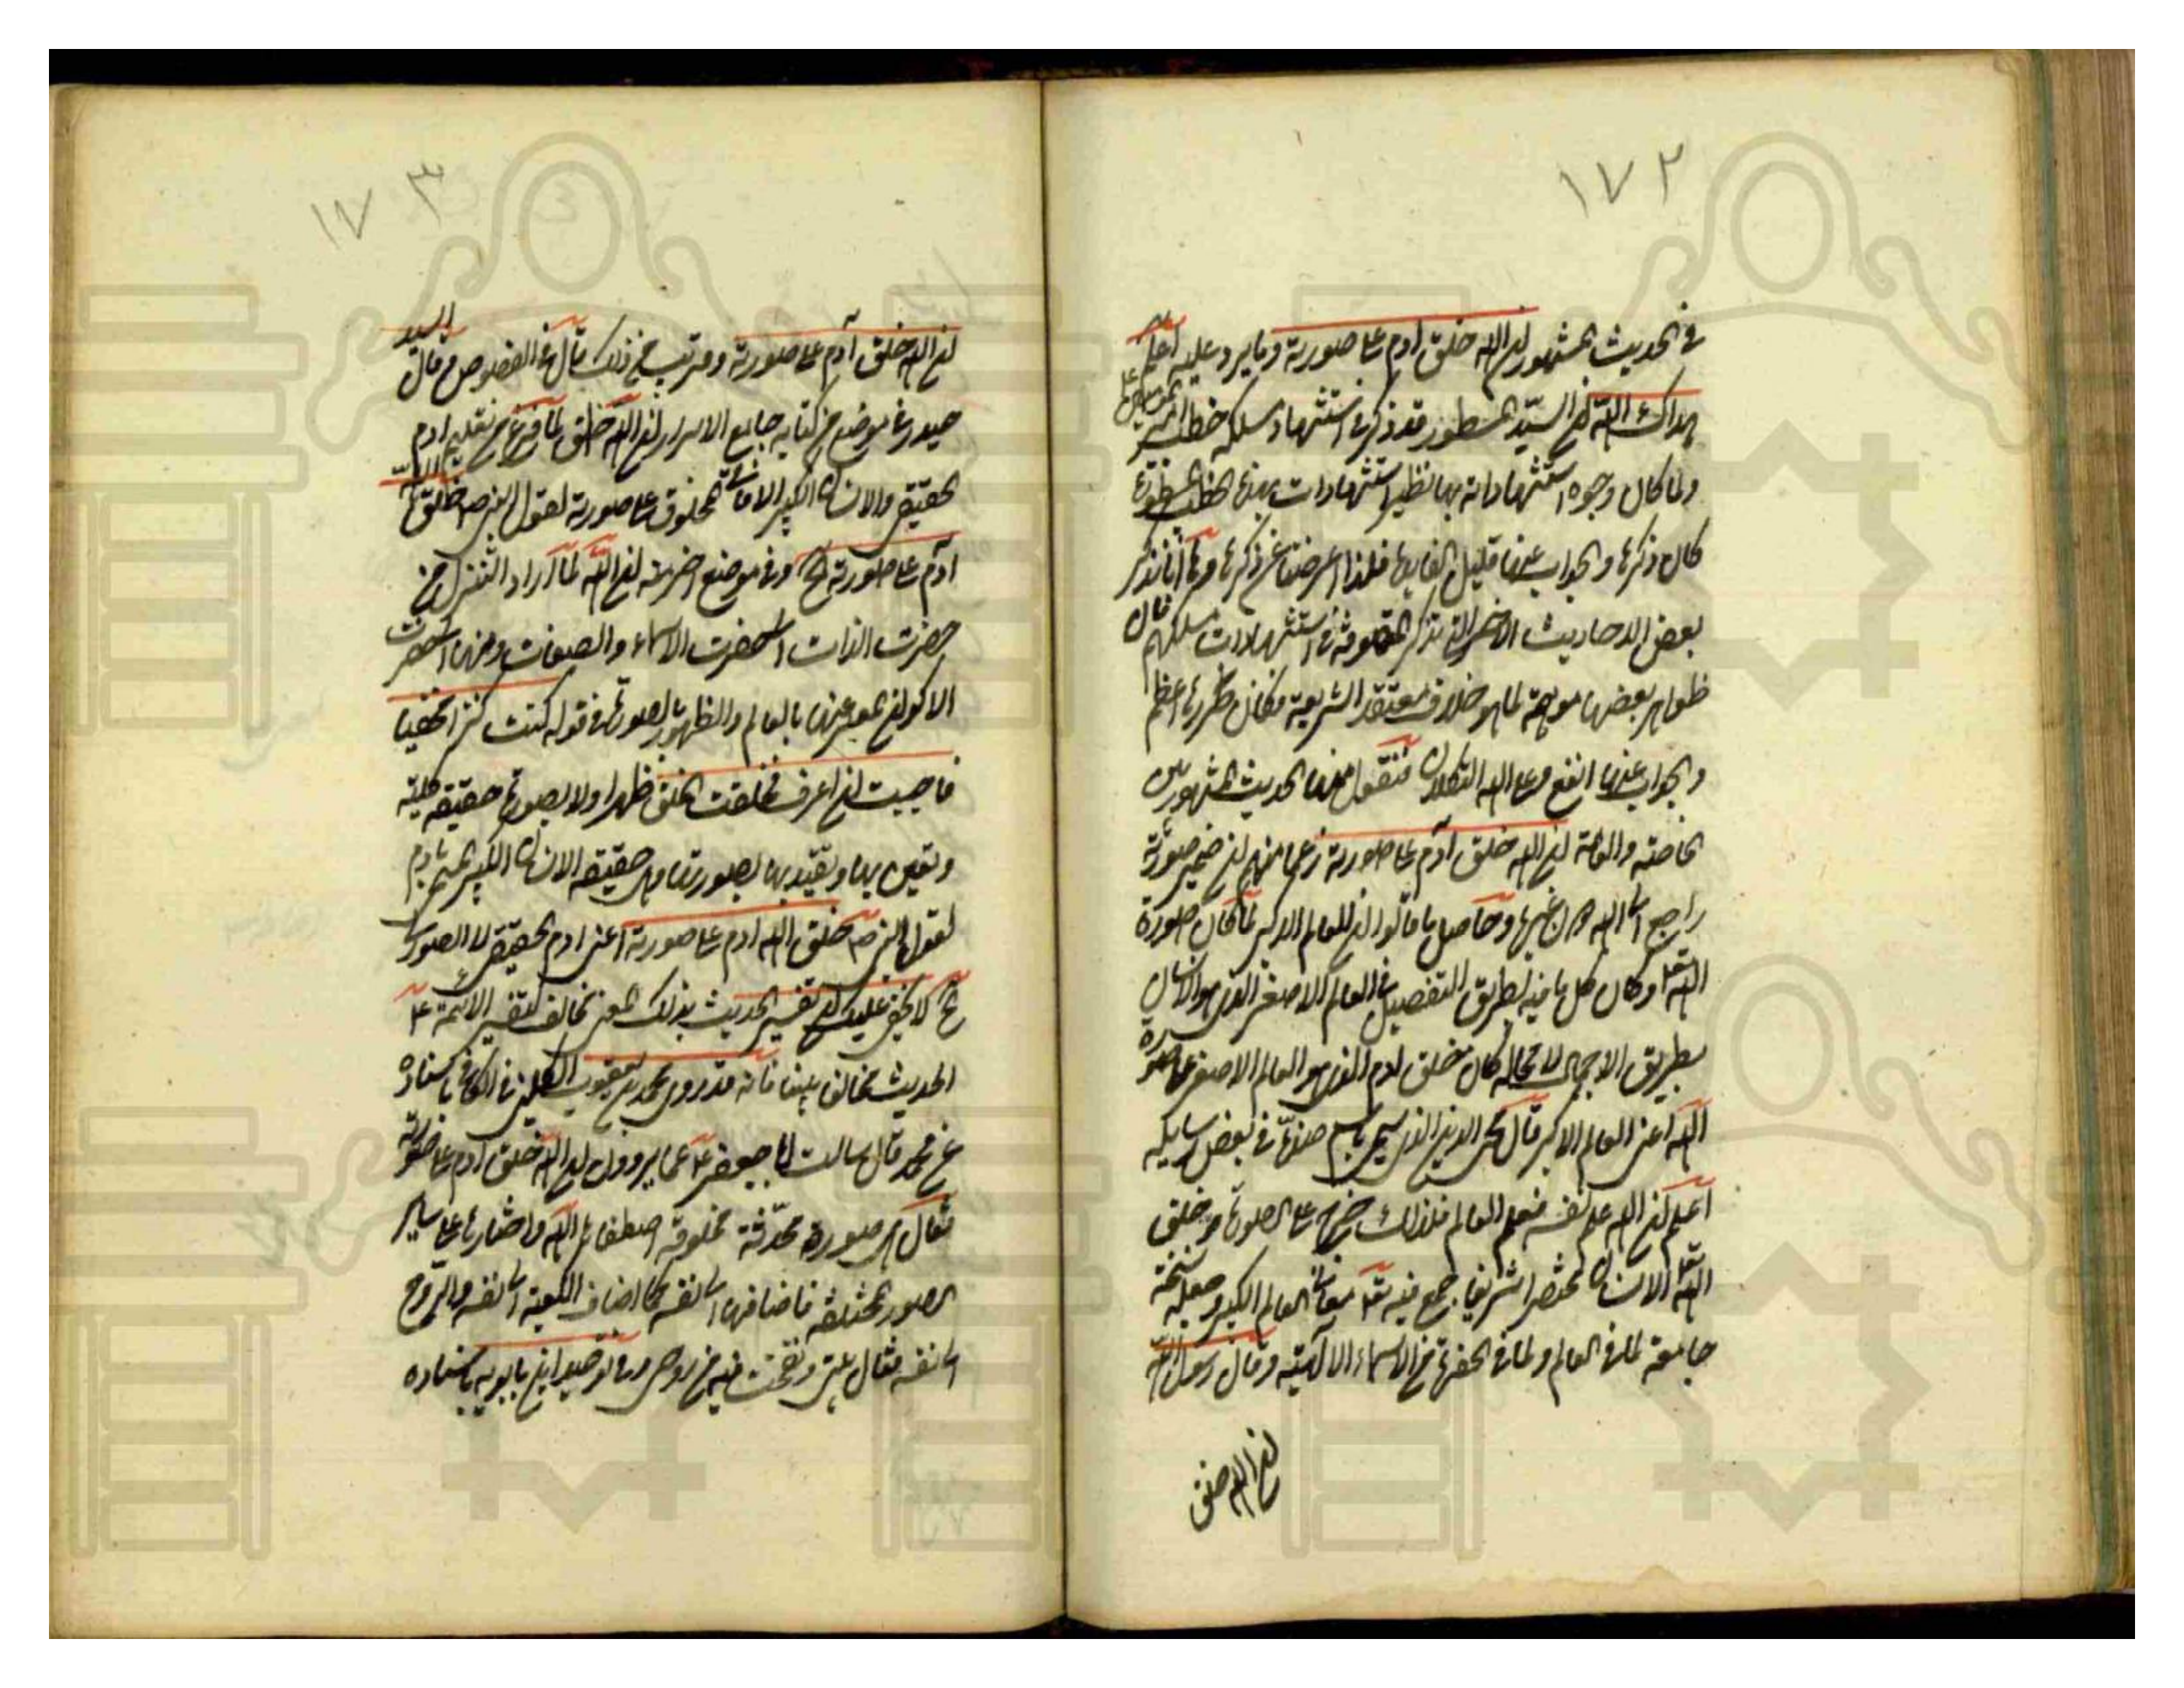 ١٧٢
في الحديث المشهور ان الله خلق ادم على صورته وما يرد عليه اعلم
هداك الله ان السيد المسطور قد ذكر في استشهاد مسلكه خطب
ولما كان وجوه استشهاداته بها نظير استشهادات بهذه الخطب المسطورة
كان ذكرها والجواب عنها قليل الفايدة فلذا اعرضنا عن ذكرها وها انا نذكر
بعض الاحاديث الاخر التي تذكر المتصوفة في استشهادات مسلكهم فان
ظواهر بعضها موهمة لما هو خلاف معتقد الشريعة فكان ضررها اعظم
والجواب عنها انفع وعلى الله التكلان فنقول منها الحديث المشهور بين
الخاصة والعامة ان الله خلق آدم على صورته زعما منهم ان ضمير صورته
راجع الى الله وحاصل ما قالوا ان للعالم الاكبر لما كان صورة
الله تعالى وكان كل ما فيه بطريق التفصيل في العالم الاصغر الذي هو الانسان
بطريق الاجمال لا محالة كان خلق ادم الذي هو العالم الاصغر على صورة
الله اعني العالم الاكبر قال محي الدين الذي سمي باسم ضده في بعض رسايله
اعلم ان الله علم نفسه فعلم العالم فلذلك خرج على الصورة وخلق
الله تعالى الانسان مختصرا شريفا جمع فيه معاني العالم الكبير وجعله نسخة
جامعة لما في العالم ولما في الحضرة من الاسماء الالهية وقال رسول الله ص
ان الله خلق
١٧٣
ان الله خلق آدم على صورته وقريب من ذلك قال في الفصوص وقال السيد
حيدر في موضع من كتابه جامع الاسرار ان الله خلق لما فرغ من تعليم ادم
الحقيقي والانسان الكبير الافاقي المخلوق على صورته لقول النبي ص خلق الله
آدم على صورته الخ وفي موضع اخر منه ان الله لما اراد التنزل من
حضرت الذات الى حضرت الاسماء والصفات ومنها الى حضرت
الاكوان المعبر عنها بالعالم والظهور بالصورة في قوله كنت كنزا مخفيا
فاحببت ان اعرف فخلقت الخلق ظهر اولا بصورة حقيقة كلية
وتعين بها وتقيد بها بصورتها وهي حقيقة الانسان الكبير المسمى بادم
لقول النبي ص خلق الله ادم على صورته اعني ادم الحقيقي لا الصوري
الخ لا يخفى عليك ان تفسير الحديث بذلك المعنى مخالف لتفسير الائمة ع
الحديث مخالفا بينا فانه قد روى محمد بن يعقوب الكليني في الكافي باسناده
عن محمد قال سالت ابا جعفر ع عما يروون ان الله خلق ادم على صورته
فقال هي صورة محدثة مخلوقة اصطفاها الله واختارها على ساير
الصور المختلفة فاضافها الى نفسه كما اضاف الكعبة الى نفسه والروح
الى نفسه فقال بيتي ونفخت فيه من روحي وفي توحيد ابن بابويه باسناده